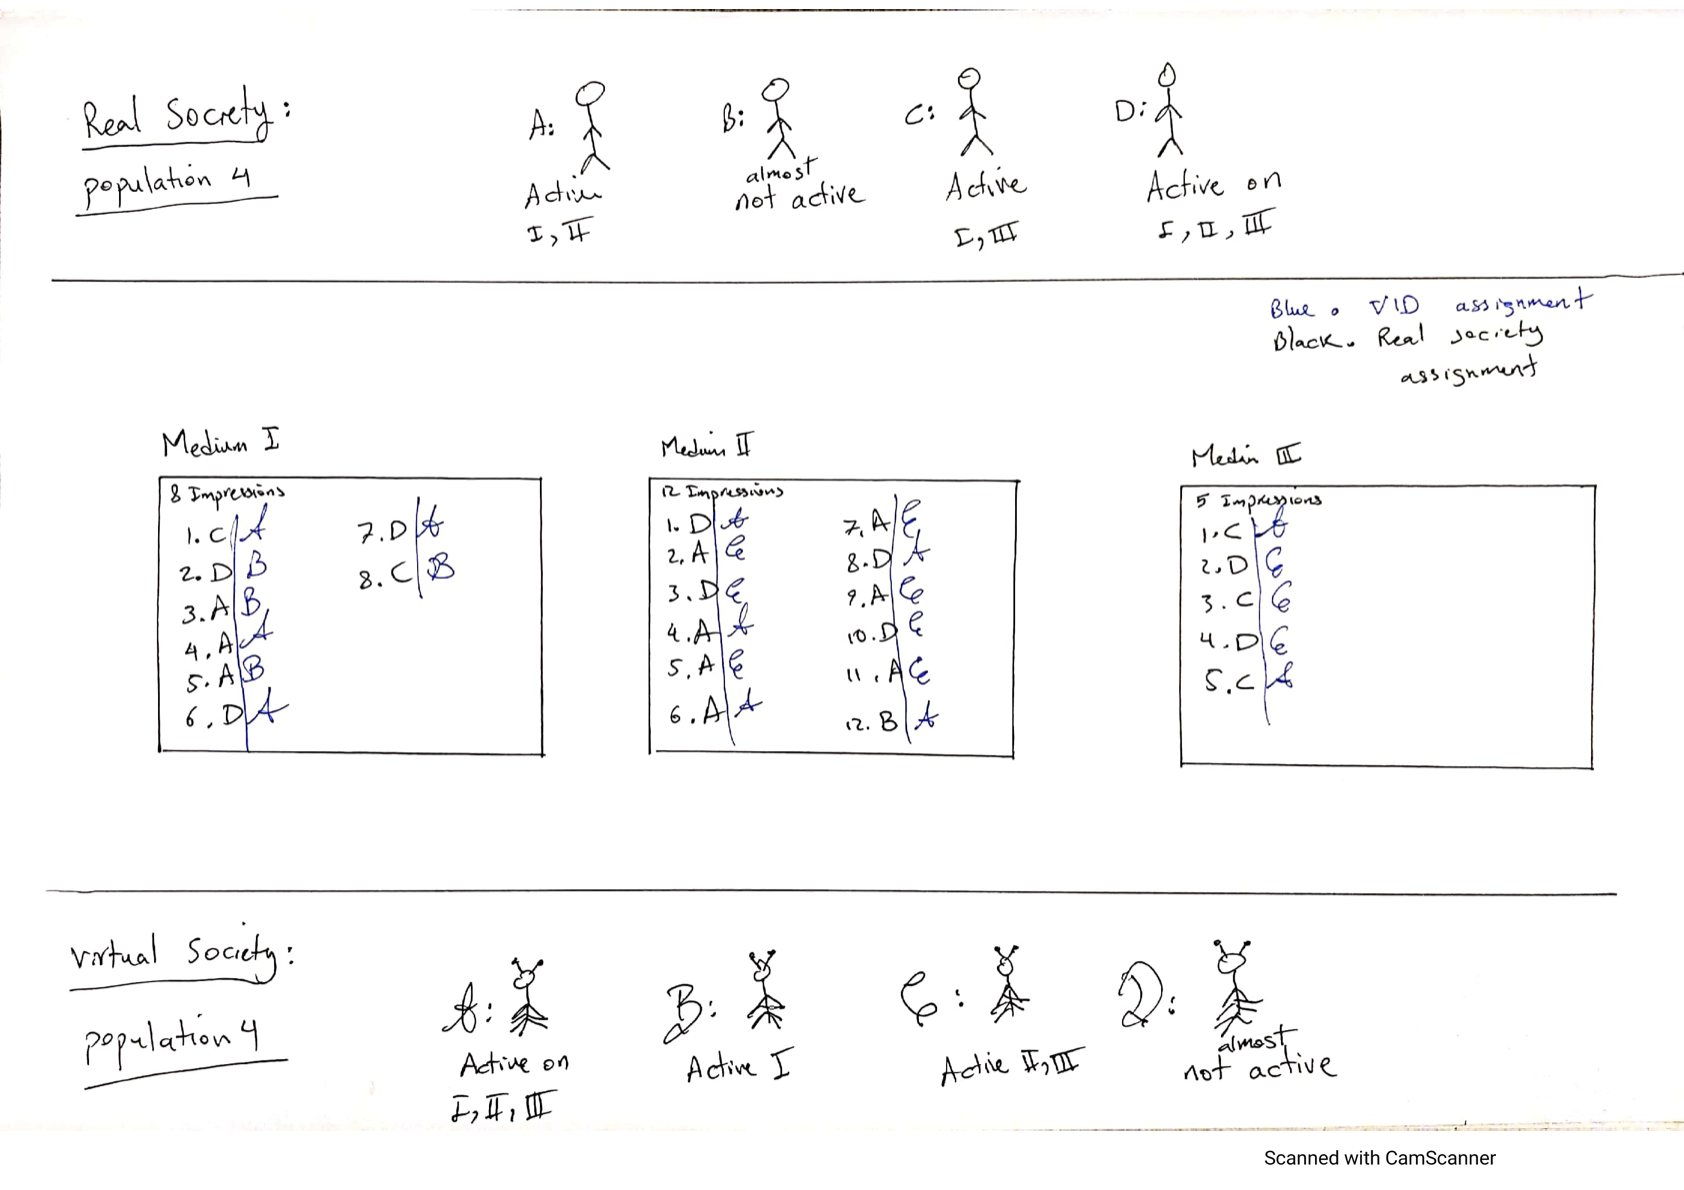 Real Society:
population 4
A:
Active
I, II
B:
almost
not active
C:
Active
I, III
D:
Active on
I, II, III
Blue. VID assignment
Black. Real society
assignment
Medium I
8 Impressions
1. C | A
2. D | B
3. A | B
4. A | A
5. A | B
6. D | A
7. D | A
8. C | B
Medium II
12 Impressions
1. D | A
2. A | C
3. D | C
4. A | A
5. A | C
6. A | A
7. A | C
8. D | A
9. A | C
10. D | C
11. A | C
12. B | A
Mediu III
5 Impressions
1. C | A
2. D | C
3. C | C
4. D | C
5. C | A
Virtual Society:
population 4
A:
Active on
I, II, III
B:
Active I
C:
Active II, III
D:
almost
not active
Scanned with CamScanner